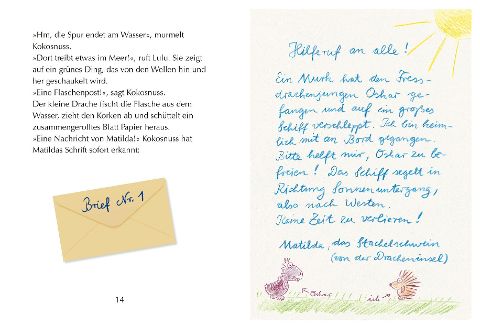 »Hm, die Spur endet am Wasser«, murmelt
Kokosnuss.
»Dort treibt etwas im Meer!«, ruft Lulu. Sie zeigt
auf ein grünes Ding, das von den Wellen hin und
her geschaukelt wird.
»Eine Flaschenpost!«, sagt Kokosnuss.
Der kleine Drache fischt die Flasche aus dem
Wasser, zieht den Korken ab und schüttelt ein
zusammengerolltes Blatt Papier heraus.
»Eine Nachricht von Matilda!« Kokosnuss hat
Matildas Schrift sofort erkannt:
Brief Nr. 1
14
Hilferuf an alle!
Ein Murk hat den Fress-
drachenjungen Oskar ge-
fangen und auf ein großes
Schiff verschleppt. Ich bin heim-
lich mit an Bord gegangen.
Bitte helft mir, Oskar zu be-
freien! Das Schiff segelt in
Richtung Sonnenuntergang,
also nach Westen.
Keine Zeit zu verlieren!
Matilda, das Stachelschwein
(von der Dracheninsel)
Oskar
ich